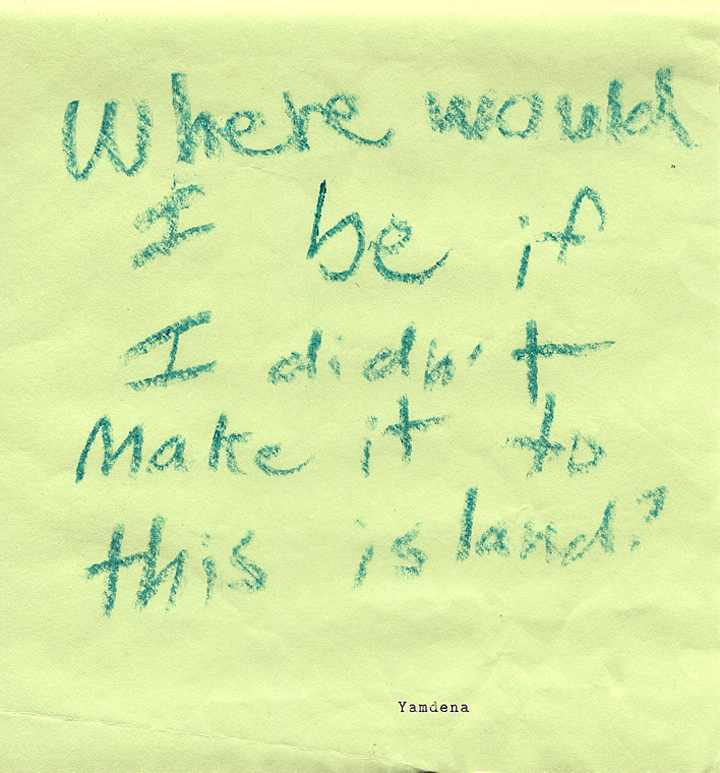 Where would
I be if
I didn't
Make it to
this island?
Yamdena